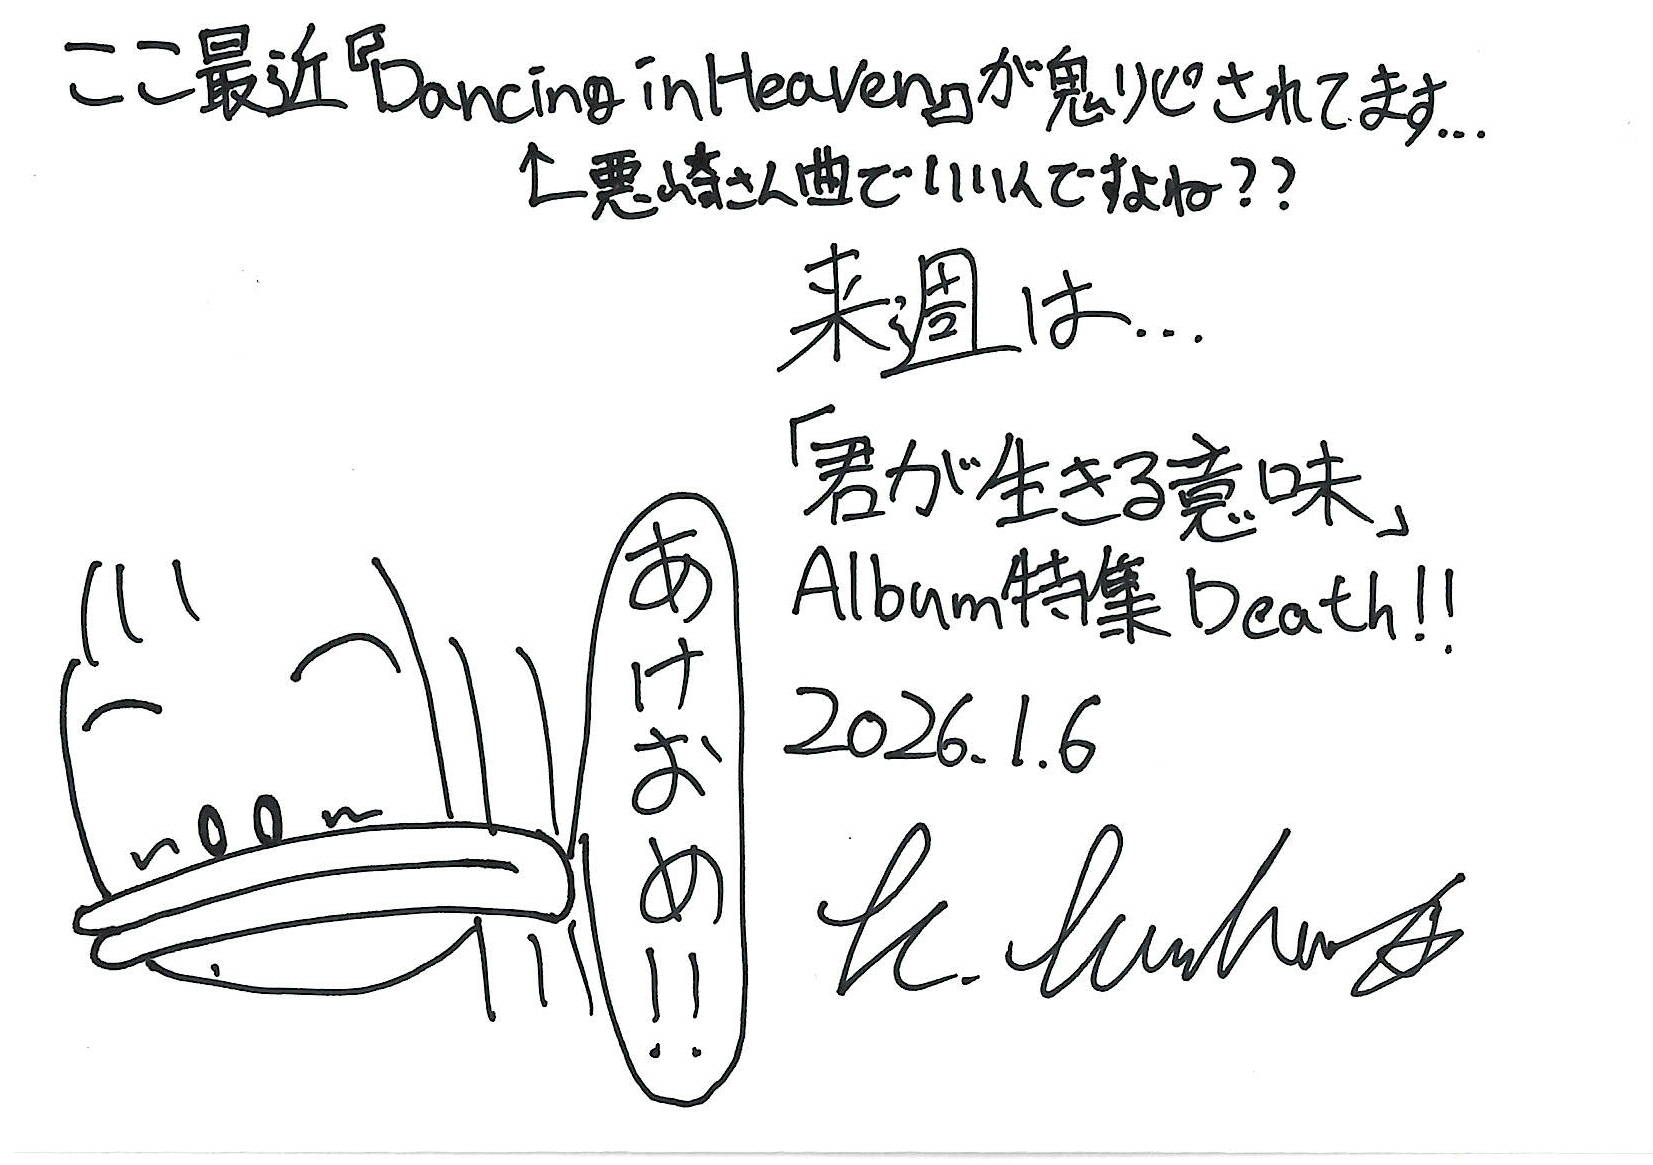 ここ最近『Dancing in Heaven』が鬼リピされてます...
↑悪崎さん曲でいいんですよね??
来週は...
「君が生きる意味」
Album特集Death!!
2026.1.6
あけおめ!!